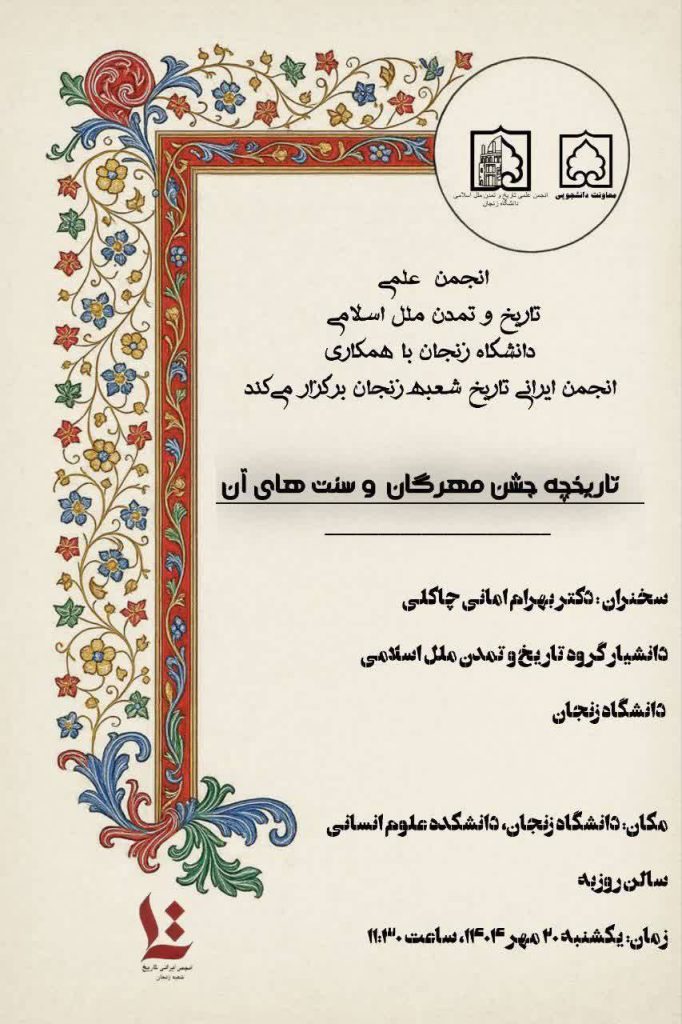 معاونت دانشجویی
انجمن علمی تاریخ و تمدن ملل اسلامی
دانشگاه زنجان
انجمن علمی
تاریخ و تمدن ملل اسلامی
دانشگاه زنجان با همکاری
انجمن ایرانی تاریخ شعبه زنجان برگزار می‌کند
تاریخچه جشن مهرگان و سنت های آن
سخنران: دکتر بهرام امانی چاکلی
دانشیار گروه تاریخ و تمدن ملل اسلامی
دانشگاه زنجان
مکان: دانشگاه زنجان، دانشکده علوم انسانی
سالن روزبه
زمان: یکشنبه ۲۰ مهر ۱۴۰۴، ساعت ۱۱:۳۰
انجمن ایرانی تاریخ
شعبه زنجان